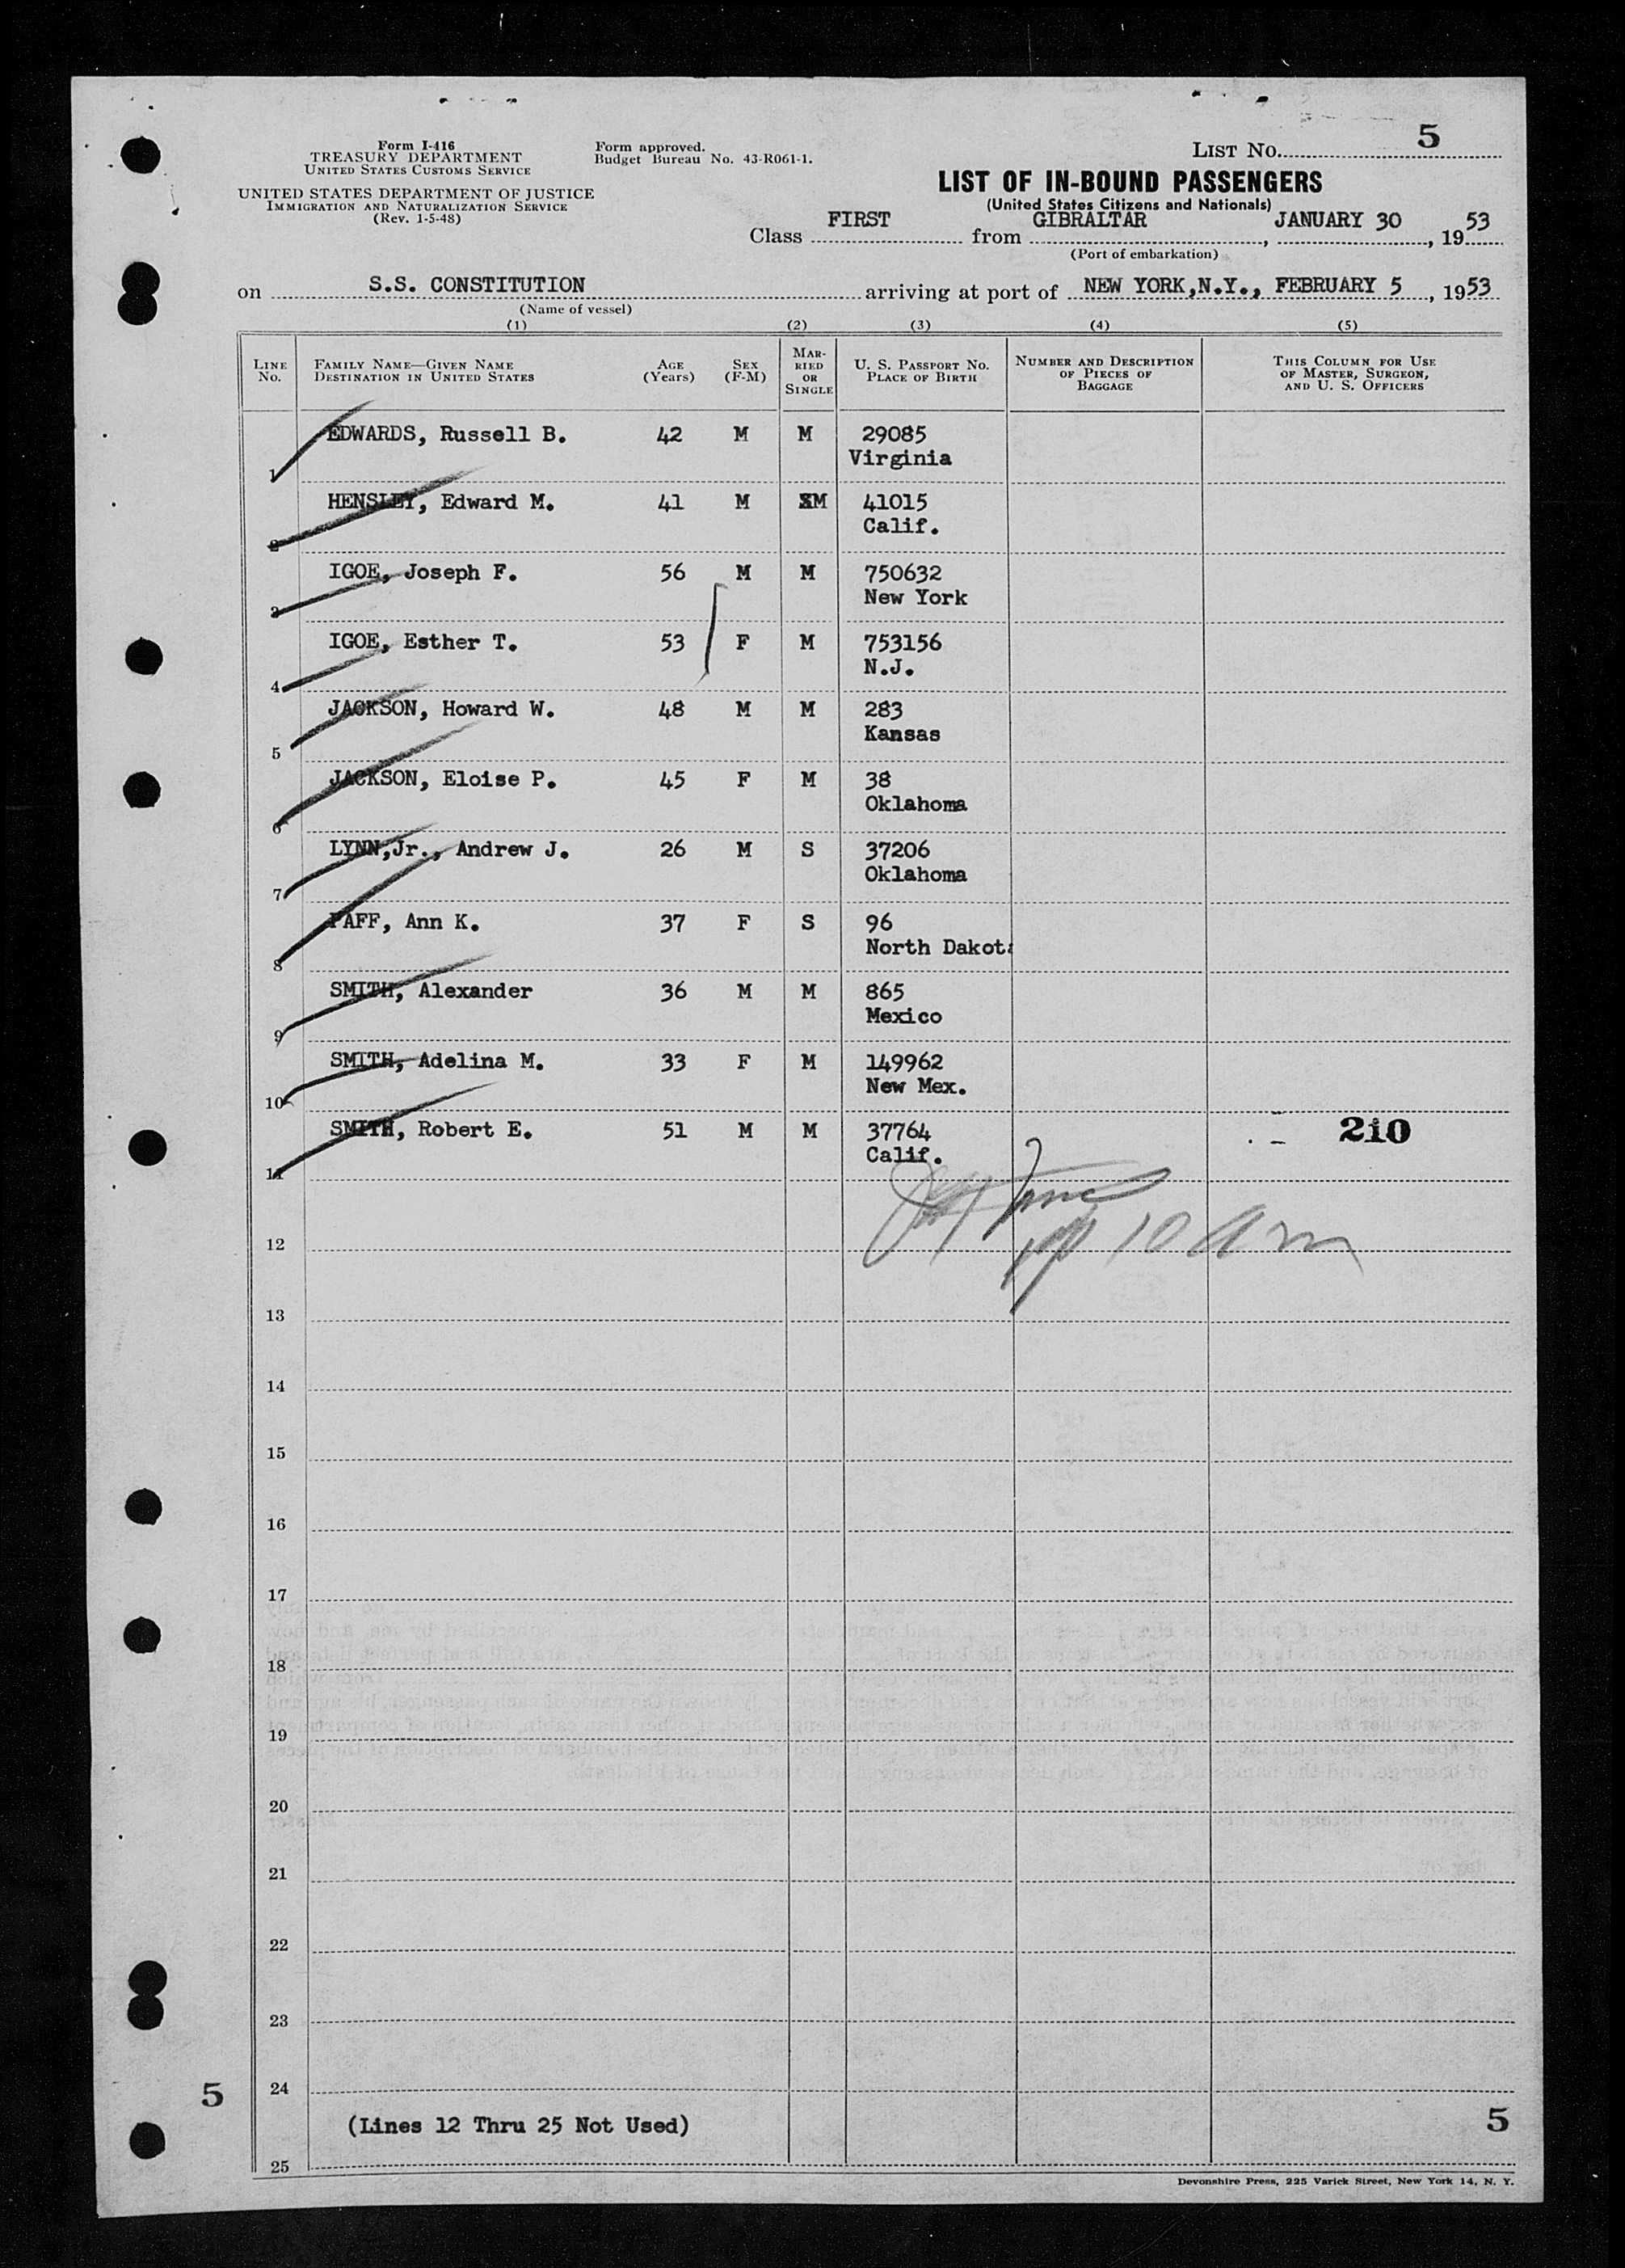 Form I-416
TREASURY DEPARTMENT
UNITED STATES CUSTOMS SERVICE
UNITED STATES DEPARTMENT OF JUSTICE
IMMIGRATION AND NATURALIZATION SERVICE
(Rev. 1-5-48)
Form approved.
Budget Bureau No. 43-R061-1.
LIST NO. 5
LIST OF IN-BOUND PASSENGERS
(United States Citizens and Nationals)
Class FIRST from GIBRALTAR, JANUARY 30, 1953
(Port of embarkation)
on S.S. CONSTITUTION arriving at port of NEW YORK,N.Y., FEBRUARY 5, 1953
(Name of vessel)
(1) (2) (3) (4) (5)
LINE NO.
FAMILY NAME—GIVEN NAME
DESTINATION IN UNITED STATES
AGE (Years)
SEX (F-M)
MARRIED OR SINGLE
U. S. PASSPORT NO.
PLACE OF BIRTH
NUMBER AND DESCRIPTION
OF PIECES OF
BAGGAGE
THIS COLUMN FOR USE
OF MASTER, SURGEON,
AND U. S. OFFICERS
EDWARDS, Russell B. 42 M M 29085
1 Virginia
HENSLEY, Edward M. 41 M M 41015
2 Calif.
IGOE, Joseph F. 56 M M 750632
3 New York
IGOE, Esther T. 53 F M 753156
4 N.J.
JACKSON, Howard W. 48 M M 283
5 Kansas
JACKSON, Eloise P. 45 F M 38
6 Oklahoma
LYNN,Jr., Andrew J. 26 M S 37206
7 Oklahoma
PAFF, Ann K. 37 F S 96
8 North Dakota
SMITH, Alexander 36 M M 865
9 Mexico
SMITH, Adelina M. 33 F M 149962
10 New Mex.
SMITH, Robert E. 51 M M 37764 210
11 Calif.
10 am
12
13
14
15
16
17
18
19
20
21
22
23
5 24 5
(Lines 12 Thru 25 Not Used)
25
Devonshire Press, 225 Varick Street, New York 14, N. Y.